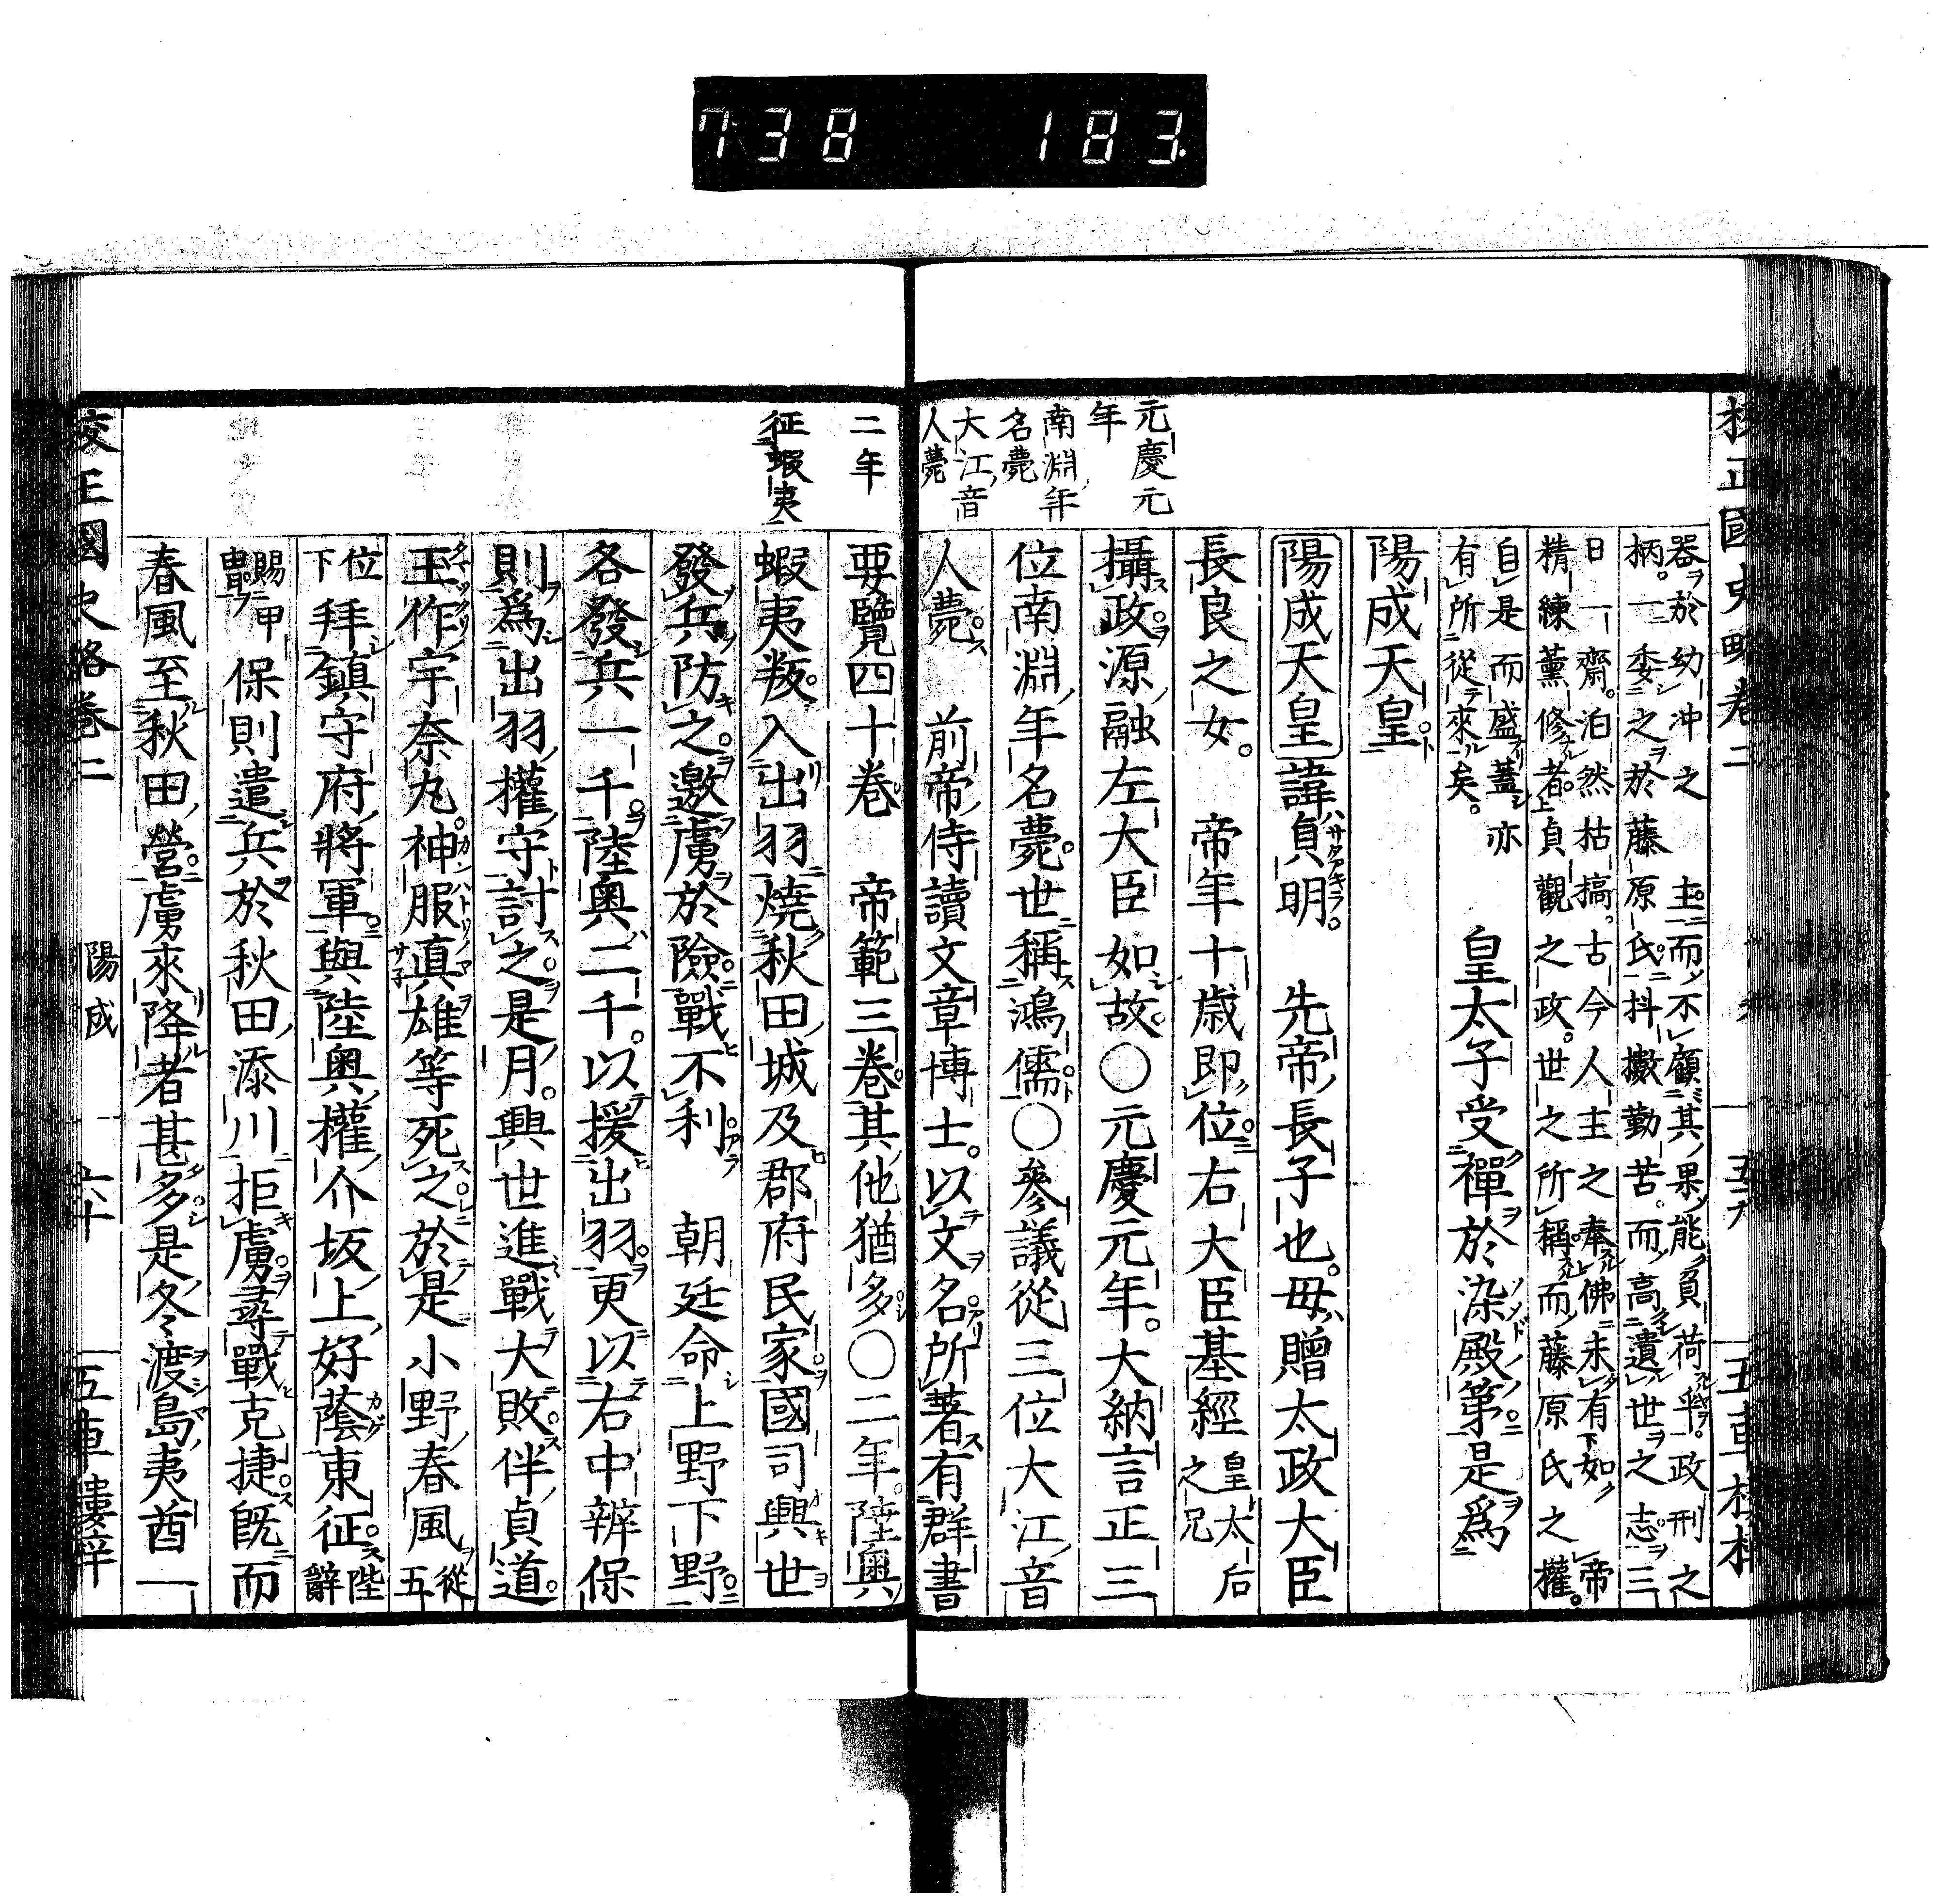 738 183.
校正國史略卷二
器於幼冲之主而不顧其果能負荷乎政刑之
柄一委之於藤原氏抖擻勤苦而高遺世之志三
日一齋泊然枯槁古今人主之奉佛未有如帝
精練薰修者貞觀之政世之所稱而藤原氏之權
自是而盛蓋亦
有所從來矣
皇太子受禪於染殿第是爲
陽成天皇
陽成天皇諱貞明先帝長子也母贈太政大臣
長良之女帝年十歳即位右大臣基經皇太后之兄
攝政源融左大臣如故○元慶元年大納言正三
位南淵年名薨世稱鴻儒○參議從三位大江音
人薨前帝侍讀文章博士以文名所著有群書
元慶元年
南淵年名薨
大江音人薨
要覽四十卷帝範三卷其他猶多○二年陸奧
蝦夷叛入出羽燒秋田城及郡府民家國司興世
發兵防之邀虜於險戰不利朝廷命上野下野
各發兵一千陸奧二千以援出羽更以右中辨保
則爲出羽權守討之是月興世進戰大敗伴貞道
玉作宇奈丸神服真雄等死之於是小野春風從五
位下拜鎮守府將軍與陸奧權介坂上好蔭東征陛辭
賜甲冑保則遣兵於秋田添川拒虜尋戰克捷既而
春風至秋田營虜來降者甚多是冬渡島夷酋一
二年
征蝦夷
校正國史略卷二
陽成
六十
五車樓梓